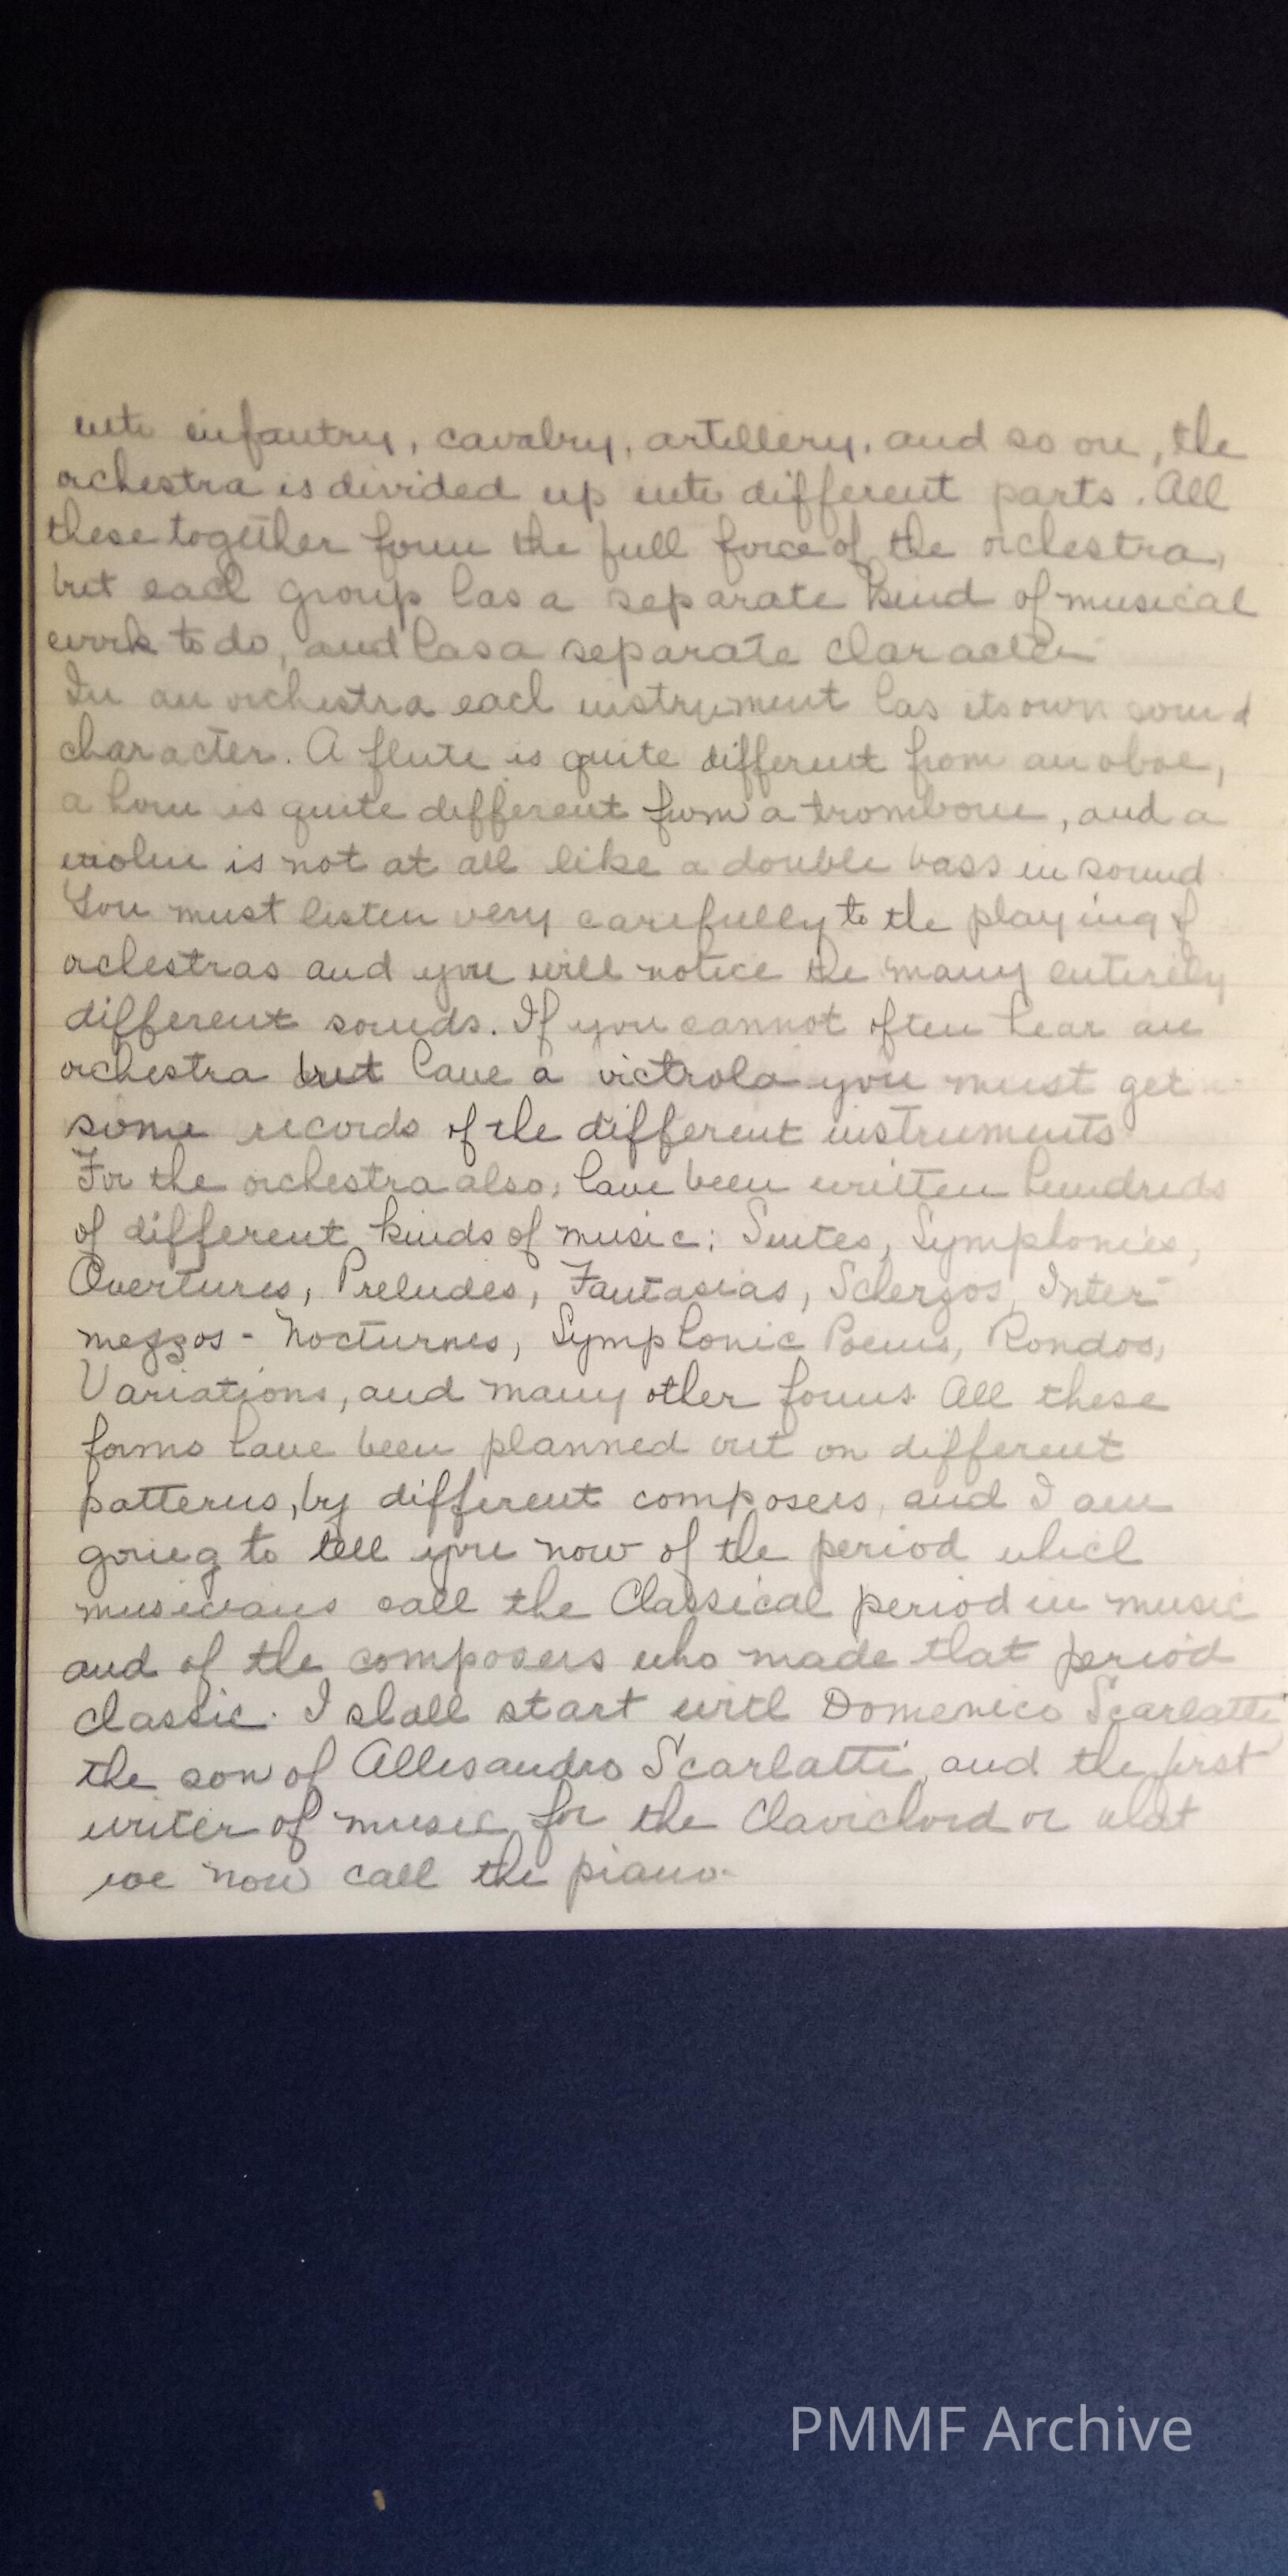 into infantry, cavalry, artillery, and so on, the
orchestra is divided up into different parts. All
these together form the full force of the orchestra,
but each group has a separate kind of musical
work to do, and has a separate character
In an orchestra each instrument has its own sound
character. A flute is quite different from an oboe,
a horn is quite different from a trombone, and a
violin is not at all like a double bass in sound.
You must listen very carefully to the playing of
orchestras and you will notice the many entirely
different sounds. If you cannot often hear an
orchestra but have a victrola you must get
some records of the different instruments.
For the orchestra also, have been written hundreds
of different kinds of music; Suites, Symphonies,
Overtures, Preludes, Fantasias, Scherzos, Inter-
mezzos - Nocturnes, Symphonic Poems, Rondos,
Variations, and many other forms. All these
forms have been planned out on different
patterns, by different composers, and I am
going to tell you now of the period which
musicians call the Classical period in music
and of the composers who made that period
classic. I shall start with Domenico Scarlatti
the son of Allesandro Scarlatti, and the first
writer of music for the Clavichord or what
we now call the piano.
PMMF Archive